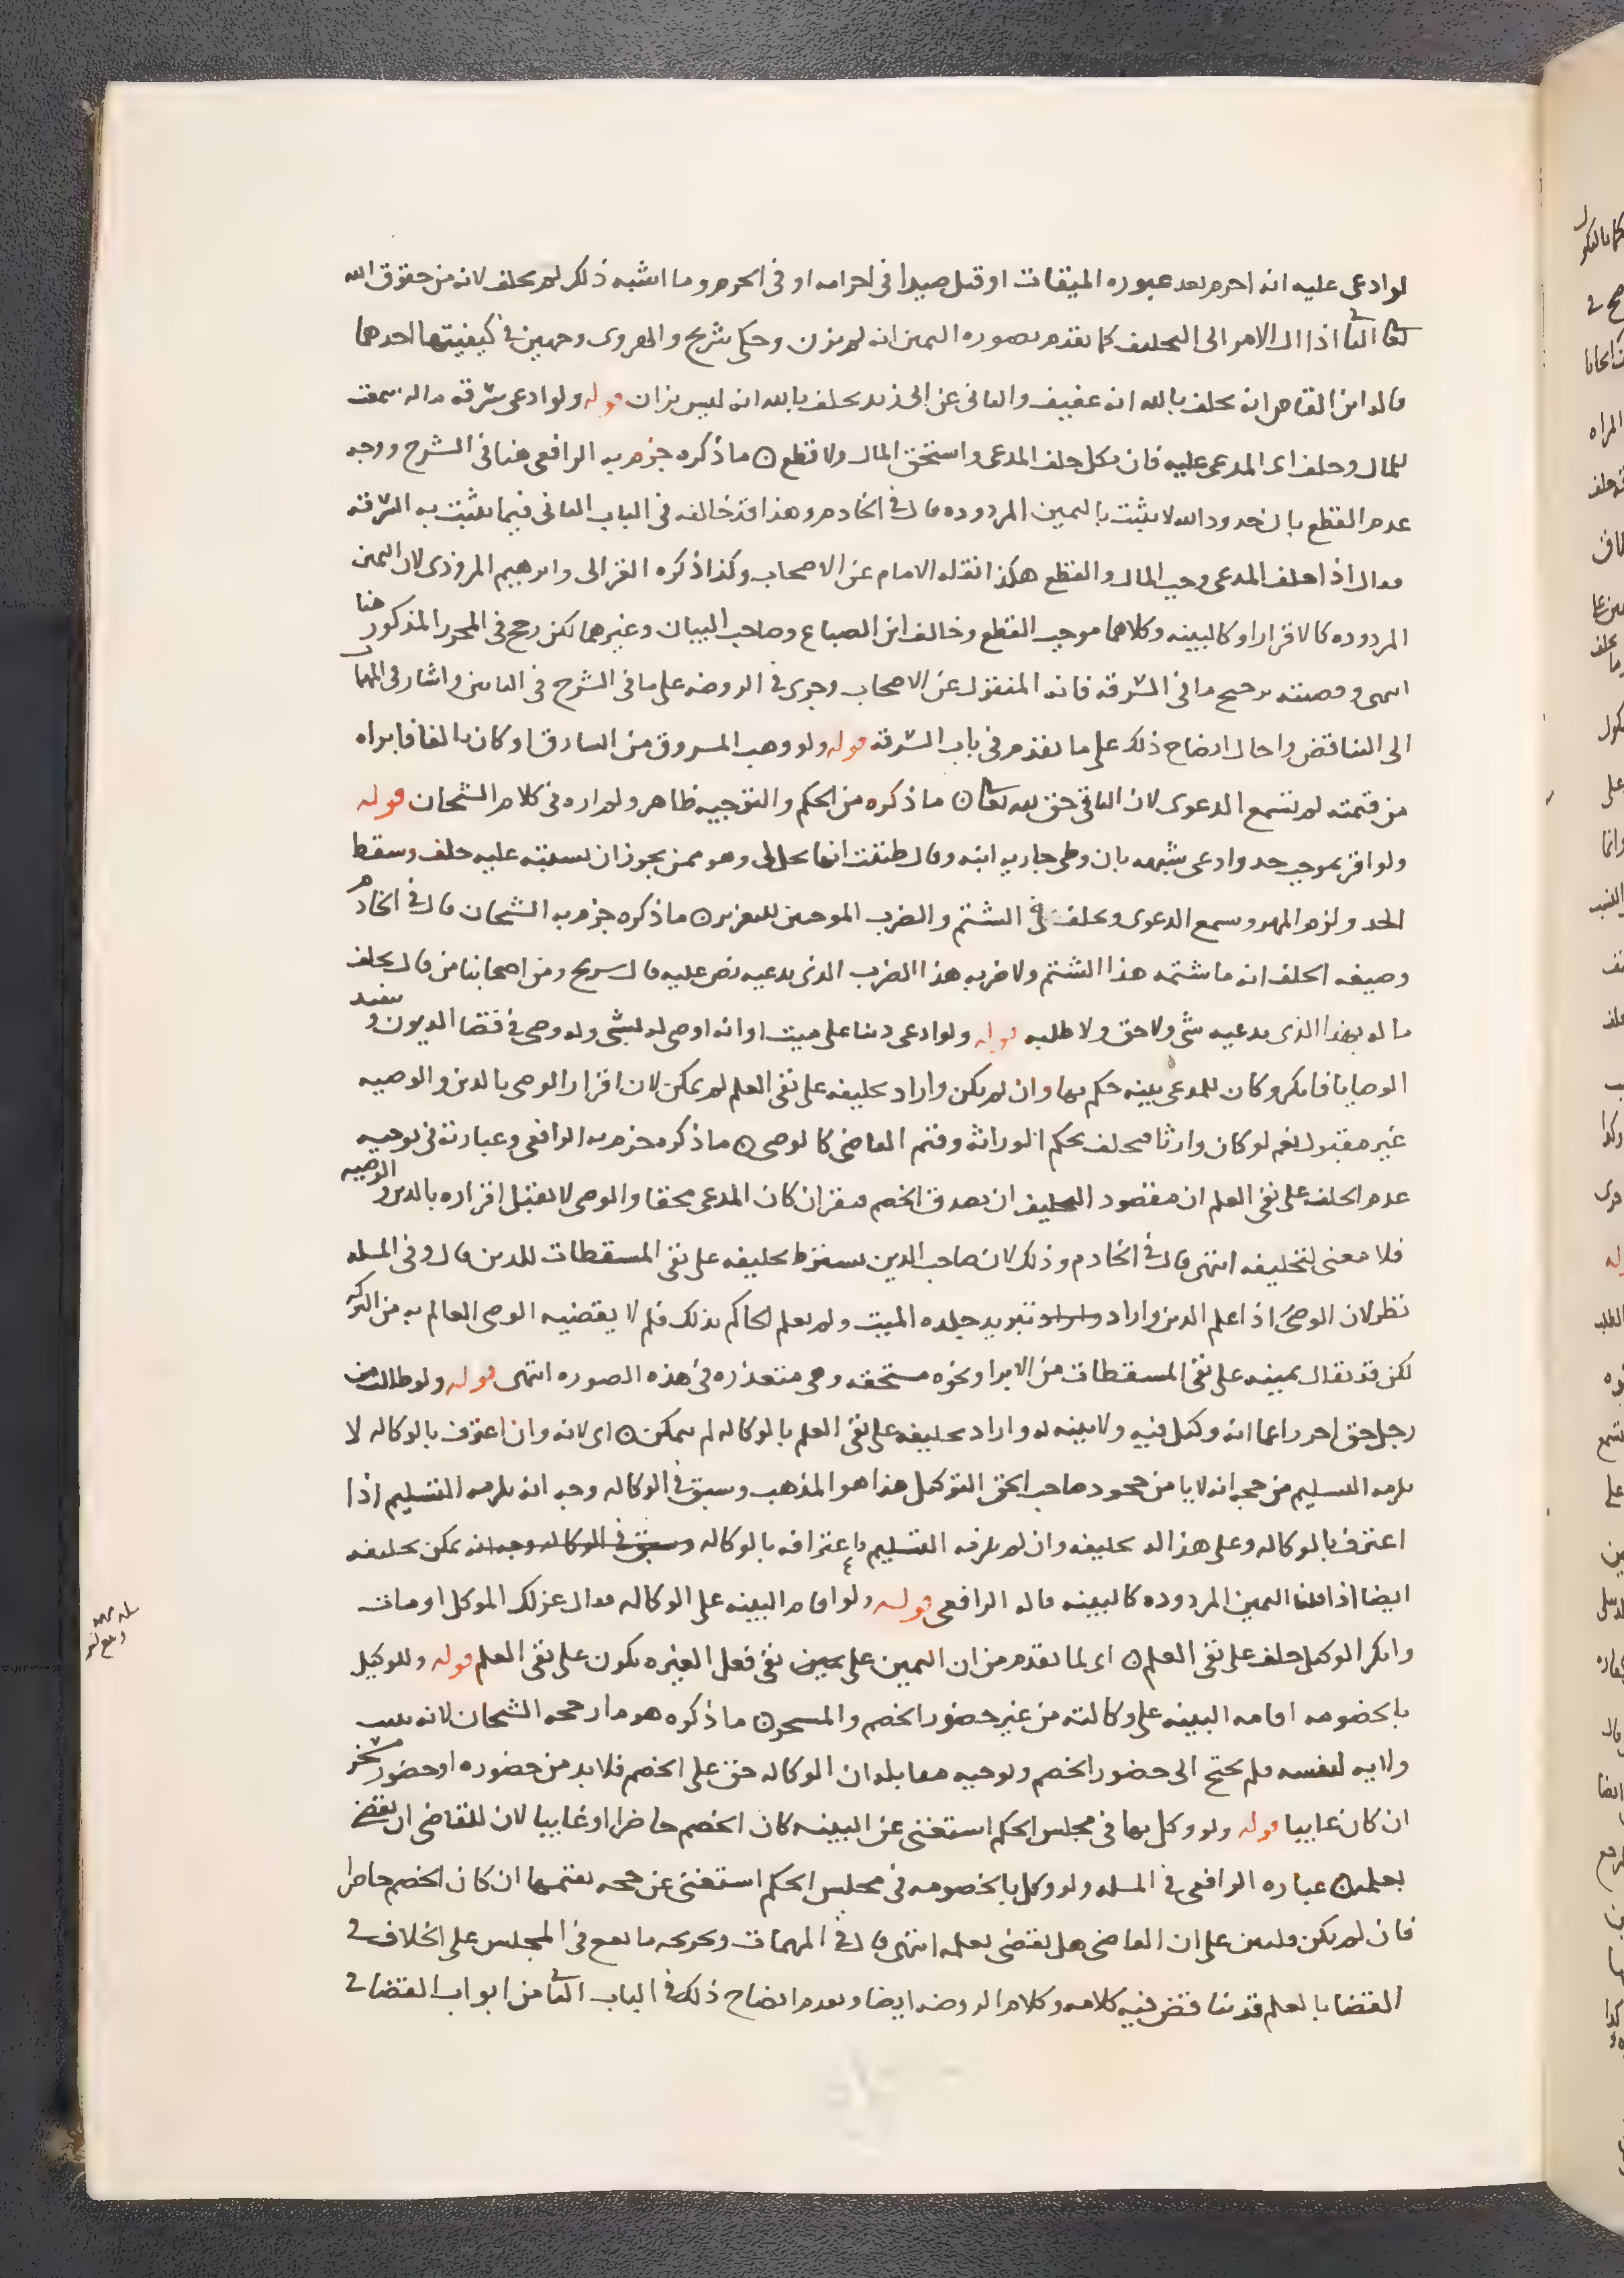 لو ادعى عليه انه احرم بعد عبوره الميقات او قتل صيدا في احرامه او في الحرم وما اشبه ذلك لم يحلف لانه من حقوق الله
تعالى الثاني اذا ال الامر الى التحليف كما تقدم بصوره اليمين انه لم يزن وحكى شريح والهروى وجهين في كيفيتها احدهما
قاله ابن القاص انه يحلف بالله انه عفيف والثاني عن ابي زيد يحلف بالله انه ليس بزان قوله ولو ادعى سرقه ماله سمعت
للمال وحلف اى المدعى عليه فان نكل حلف المدعى واستحق المال ولا قطع ٥ ما ذكره جزم به الرافعى هنا في الشرح ووجه
عدم القطع بان حدود الله لا يثبت باليمين المردوده قال في الخادم وهذا قد خالفه في الباب الثاني فيما يثبت به السرقه
فقال اذا حلف المدعى وجب المال والقطع هكذا نقله الامام عن الاصحاب وكذا ذكره الغزالى وابرهيم المروذى لان اليمين
المردوده كالاقرار او كالبينه وكلاهما موجب القطع وخالف ابن الصباغ وصاحب البيان وغيرهما لكن رجح في المحرر المذكور هنا
انتهى وقضيته ترجيح ما في السرقه فانه المنقول عن الاصحاب وجرى في الروضه على ما في الشرح في البابين واشار في المهمات
الى التناقض واحال ايضاح ذلك على ما تقدم في باب السرقه قوله ولو وهب المسروق من السارق او كان بالغا فابراه
من قيمته لم تسمع الدعوى لان الباقى حق لله تعالى ٥ ما ذكره من الحكم والتوجيه ظاهر ولم اره في كلام الشيخان قوله
ولو اقر بموجب حد وادعى شبهه بان وطى جاريه ابنه وقال ظننت انها تحل لى وهو ممن يجوز ان يشتبه عليه حلف وسقط
الحد ولزم المهر وسمع الدعوى ويحلف في الشتم والضرب الموجبين للتعزير ٥ ما ذكره جزم به الشيخان قال في الخادم
وصيغه الحلف انه ما شتمه هذا الشتم ولا ضربه هذا الضرب الذى يدعيه نص عليه قال سريج ومن اصحابنا من قال يحلف
ما له بهذا الذى يدعيه شي ولا حق ولا طلبه قوله ولو ادعى دينا على ميت او انه اوصى له بشى وله وصى في قضا الديون وتنفيذ
الوصايا فانكر وكان للمدعى بينه حكم بها وان لم يكن واراد تحليفه على نفى العلم لم يمكن لان اقرار الوصى بالدين والوصيه
غير مقبول نعم لو كان وارثا فيحلف بحكم الوراثه وقيم القاضى كالوصى ٥ ما ذكره جزم به الرافعى وعبارته في توجيه
عدم الحلف على نفى العلم ان مقصود التحليف ان يصدق الخصم فيقر ان كان المدعى محقا والوصى لا يقبل اقراره بالدين والوصيه
فلا معنى لتحليفه انتهى قال في الخادم وذلك لان صاحب الدين يشترط تحليفه على نفى المسقطات للدين قال وفى المسله
نظر لان الوصى اذا علم الدين واراد تبريد جلده الميت ولم يعلم الحاكم بذلك فلم لا يقضيه الوصى العالم به من التركه
لكن قد يقال يمينه على نفى المسقطات من الابرا ونحوه مستحقه وهى متعذره في هذه الصوره انتهى قوله ولو طالب من
رجل حق اخر زاعما انه وكيل فيه ولا بينه له واراد تحليفه على نفى العلم بالوكاله لم يمكن ٥ اى لانه وان اعترف بالوكاله لا
يلزمه التسليم من حجه انه لا يامن جحود صاحب الحق التوكيل هذا هو المذهب وسبق في الوكاله وجه انه يلزمه التسليم اذا
اعترف بالوكاله وعلى هذا له تحليفه وان لم يلزمه التسليم باعترافه بالوكاله وسبق في الوكاله وجه انه يمكن تحليفه
ايضا اذا قلنا اليمين المردوده كالبينه قاله الرافعى قوله ولو اقام البينه على الوكاله فقال عزلك الموكل او مات
وانكر الوكيل حلف على نفى العلم ٥ اى لما تقدم من ان اليمين على نفى فعل الغير يكون على نفى العلم قوله وللوكيل
بالخصومه اقامه البينه على وكالته من غير حضور الخصم والمسخر ٥ ما ذكره هو ما رجحه الشيخان لانه يثبت
ولايه لنفسه فلم يحتج الى حضور الخصم وتوجيه مقابله ان الوكاله حق على الخصم فلا بد من حضوره او حضور مسخر
ان كان غايبا قوله ولو وكل بها في مجلس الحكم استغنى عن البينه كان الخصم حاضرا او غايبا لان للقاضى ان يقضى
بعلمه ٥ عباره الرافعى في المسله ولو وكل بالخصومه في مجلس الحكم استغنى عن حجه يقيمها ان كان الخصم حاضرا
فان لم يكن فليبن على ان القاضى هل يقضى بعلمه انتهى قال في المهمات وتخريجه ما يقع في المجلس على الخلاف في
القضا بالعلم قد تناقض فيه كلامه وكلام الروضه ايضا وتقدم ايضاح ذلك في الباب الثاني من ابواب القضا في